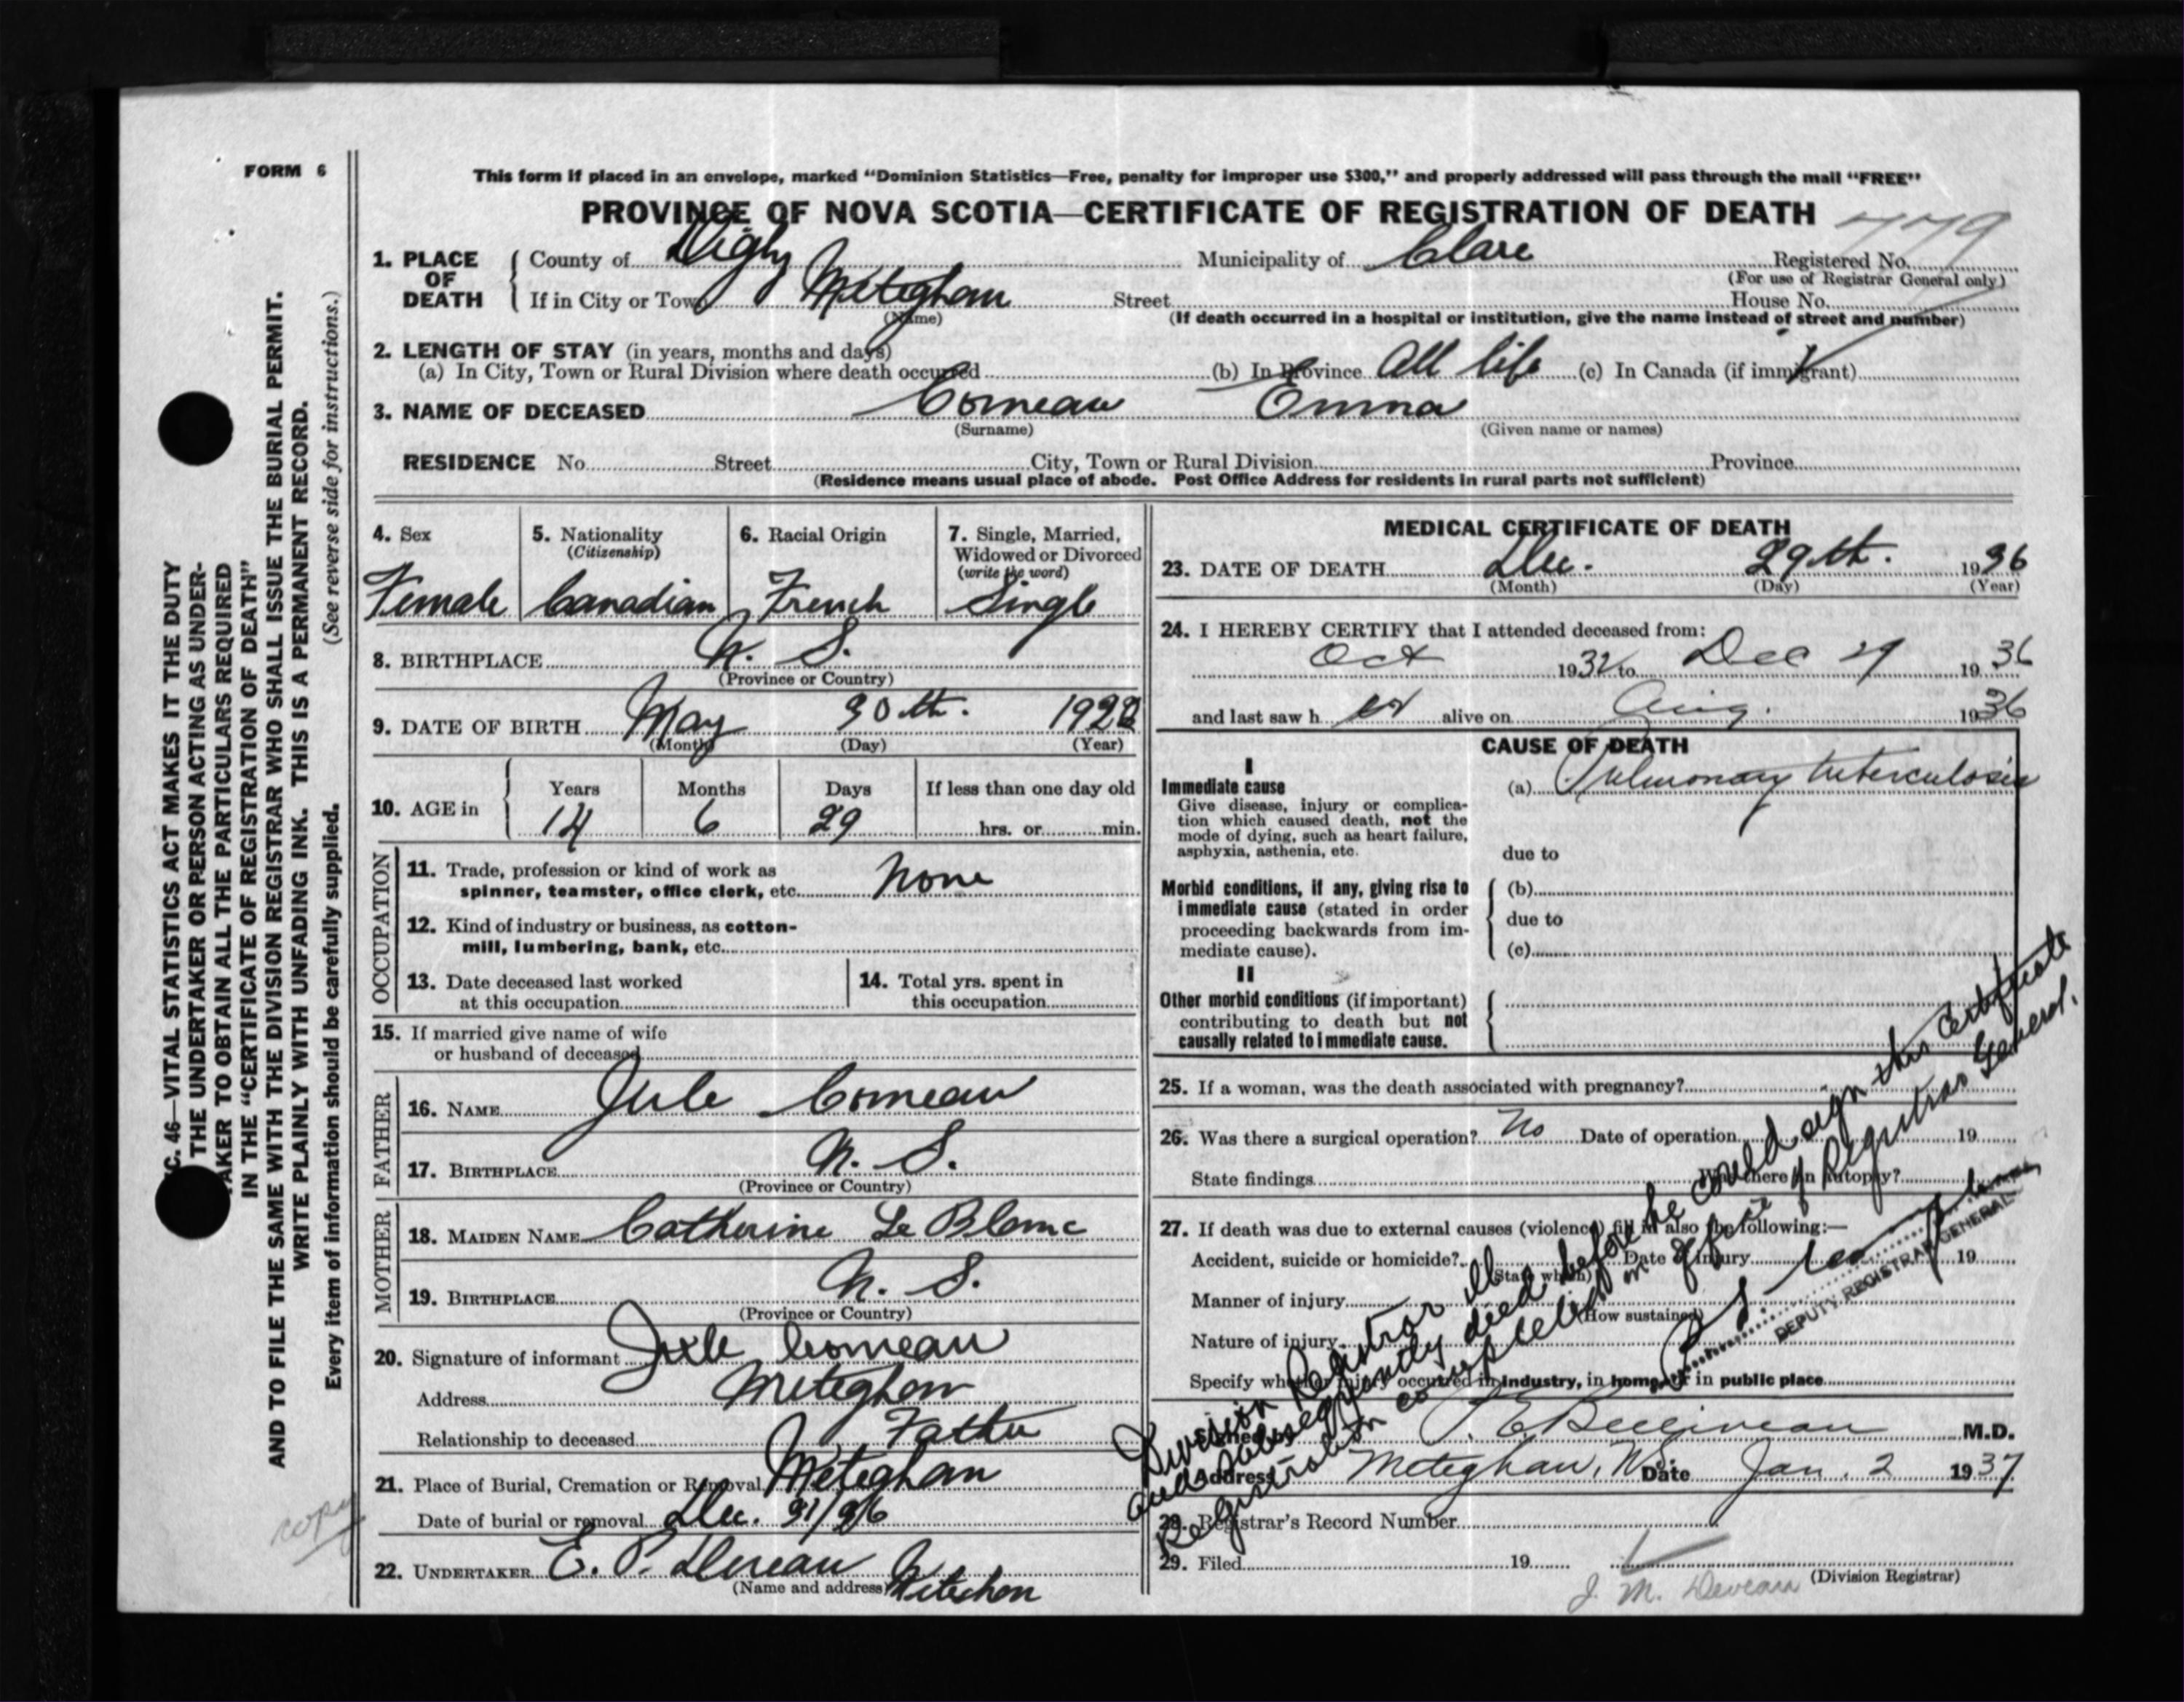 FORM 6
This form if placed in an envelope, marked “Dominion Statistics—Free, penalty for improper use $300,” and properly addressed will pass through the mail “FREE”
PROVINCE OF NOVA SCOTIA—CERTIFICATE OF REGISTRATION OF DEATH
779
1. PLACE OF DEATH County of Digby Municipality of Clare Registered No.
(For use of Registrar General only)
If in City or Town Meteghan Street House No.
(Name) (If death occurred in a hospital or institution, give the name instead of street and number)
2. LENGTH OF STAY (in years, months and days)
(a) In City, Town or Rural Division where death occured (b) In Province All life (c) In Canada (if immigrant)
3. NAME OF DECEASED Comeau Emma
(Surname) (Given name or names)
RESIDENCE No. Street City, Town or Rural Division Province
(Residence means usual place of abode. Post Office Address for residents in rural parts not sufficient)
4. Sex
Female
5. Nationality
(Citizenship)
Canadian
6. Racial Origin
French
7. Single, Married,
Widowed or Divorced
(write the word)
Single
8. BIRTHPLACE N. S.
(Province or Country)
9. DATE OF BIRTH May 30th. 1922
(Month) (Day) (Year)
10. AGE in Years Months Days If less than one day old
14 6 29 hrs. or min.
OCCUPATION
11. Trade, profession or kind of work as
spinner, teamster, office clerk, etc. None
12. Kind of industry or business, as cotton-
mill, lumbering, bank, etc.
13. Date deceased last worked
at this occupation
14. Total yrs. spent in
this occupation
15. If married give name of wife
or husband of deceased
FATHER
16. NAME Jule Comeau
17. BIRTHPLACE N. S.
(Province or Country)
MOTHER
18. MAIDEN NAME Catherine Le Blanc
19. BIRTHPLACE N. S.
(Province or Country)
20. Signature of informant Jule Comeau
Address Meteghan
Relationship to deceased Father
21. Place of Burial, Cremation or Removal Meteghan
Date of burial or removal Dec. 31/36
22. UNDERTAKER E. P. Deveau Meteghan
(Name and address)
MEDICAL CERTIFICATE OF DEATH
23. DATE OF DEATH Dec. 29th. 1936
(Month) (Day) (Year)
24. I HEREBY CERTIFY that I attended deceased from:
Oct 1932 to Dec 29 1936
and last saw her alive on Aug. 1936
CAUSE OF DEATH
I
Immediate cause (a) Pulmonary tuberculosis
Give disease, injury or complica-
tion which caused death, not the
mode of dying, such as heart failure,
asphyxia, asthenia, etc.
due to
Morbid conditions, if any, giving rise to (b)
immediate cause (stated in order due to
proceeding backwards from im-
mediate cause). (c)
II
Other morbid conditions (if important)
contributing to death but not
causally related to immediate cause.
25. If a woman, was the death associated with pregnancy?
26. Was there a surgical operation? No Date of operation 19
State findings Was there an autopsy?
27. If death was due to external causes (violence) fill in also the following:—
Accident, suicide or homicide? Date of injury 19
(State which)
Manner of injury
(How sustained)
Nature of injury
Specify whether injury occurred in industry, in home, or in public place
Signed P. E. Belliveau M.D.
Address Meteghan, N.S. Date Jan. 2 1937
28. Registrar's Record Number
29. Filed 19
(Division Registrar)
J. M. Deveau
Division Registrar ill and subsequently died before he could sign this certificate
Registration completed in office of Registrar General.
DEPUTY REGISTRAR GENERAL
C. 46—VITAL STATISTICS ACT MAKES IT THE DUTY
THE UNDERTAKER OR PERSON ACTING AS UNDER-
TAKER TO OBTAIN ALL THE PARTICULARS REQUIRED
IN THE “CERTIFICATE OF REGISTRATION OF DEATH”
AND TO FILE THE SAME WITH THE DIVISION REGISTRAR WHO SHALL ISSUE THE BURIAL PERMIT.
WRITE PLAINLY WITH UNFADING INK. THIS IS A PERMANENT RECORD.
Every item of information should be carefully supplied. (See reverse side for instructions.)
copy